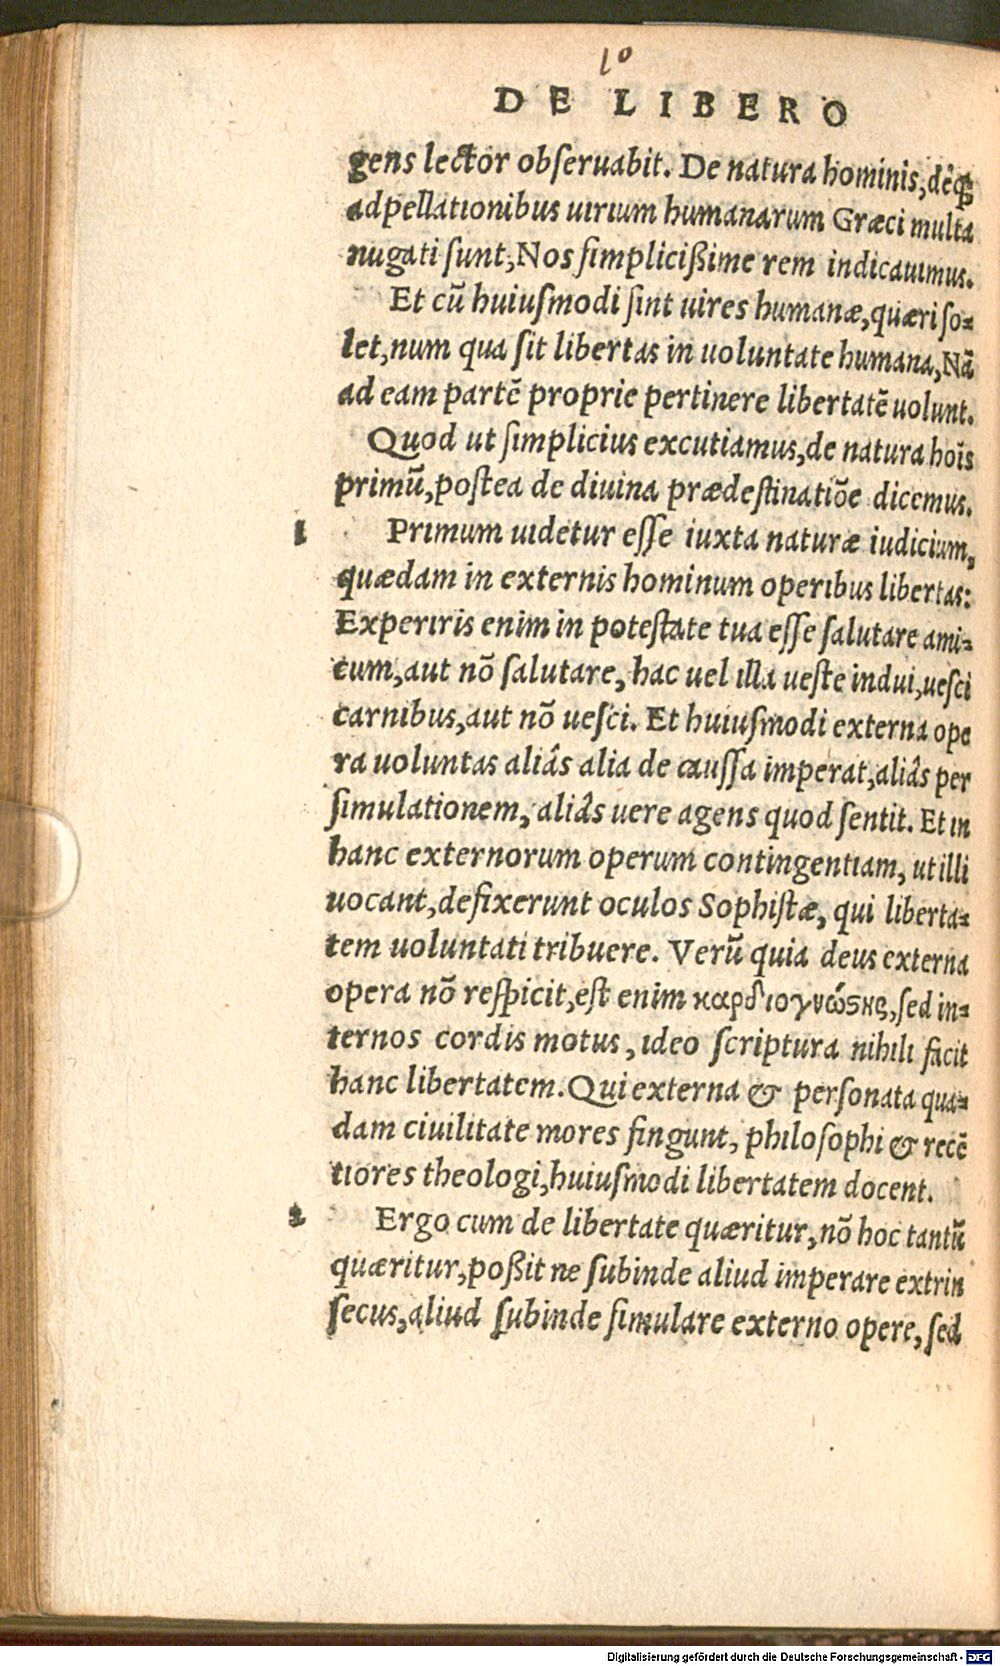 10
DE LIBERO
gens lector obſeruabit. De natura hominis, déq;
adpellationibus uirium humanarum Græci multa
nugati ſunt, Nos ſimplicißime rem indicauimus.
Et cũ huiuſmodi ſint uires humanæ, quæri ſo-
let, num qua ſit libertas in uoluntate humana, Nã
ad eam partẽ proprie pertinere libertatẽ uolunt.
Quod ut ſimplicius excutiamus, de natura hoĩs
primũ, poſtea de diuina prædeſtinatiõe dicemus.
1 Primum uidetur eſſe iuxta naturæ iudicium,
quædam in externis hominum operibus libertas:
Experiris enim in poteſtate tua eſſe ſalutare ami-
cum, aut nõ ſalutare, hac uel illa ueſte indui, ueſci
carnibus, aut nõ ueſci. Et huiuſmodi externa ope
ra uoluntas aliâs alia de cauſſa imperat, aliâs per
ſimulationem, aliâs uere agens quod ſentit. Et in
hanc externorum operum contingentiam, ut illi
uocant, defixerunt oculos Sophiſtæ, qui liberta-
tem uoluntati tribuere. Verũ quia deus externa
opera nõ reſpicit, eſt enim καρδιογνώϛης, ſed in-
ternos cordis motus, ideo ſcriptura nihili facit
hanc libertatem. Qui externa & perſonata qua-
dam ciuilitate mores fingunt, philoſophi & recẽ
tiores theologi, huiuſmodi libertatem docent.
2 Ergo cum de libertate quæritur, nõ hoc tantũ
quæritur, poßit ne ſubinde aliud imperare extrin
ſecus, aliud ſubinde ſimulare externo opere, ſed
Digitalisierung gefördert durch die Deutsche Forschungsgemeinschaft - DFG